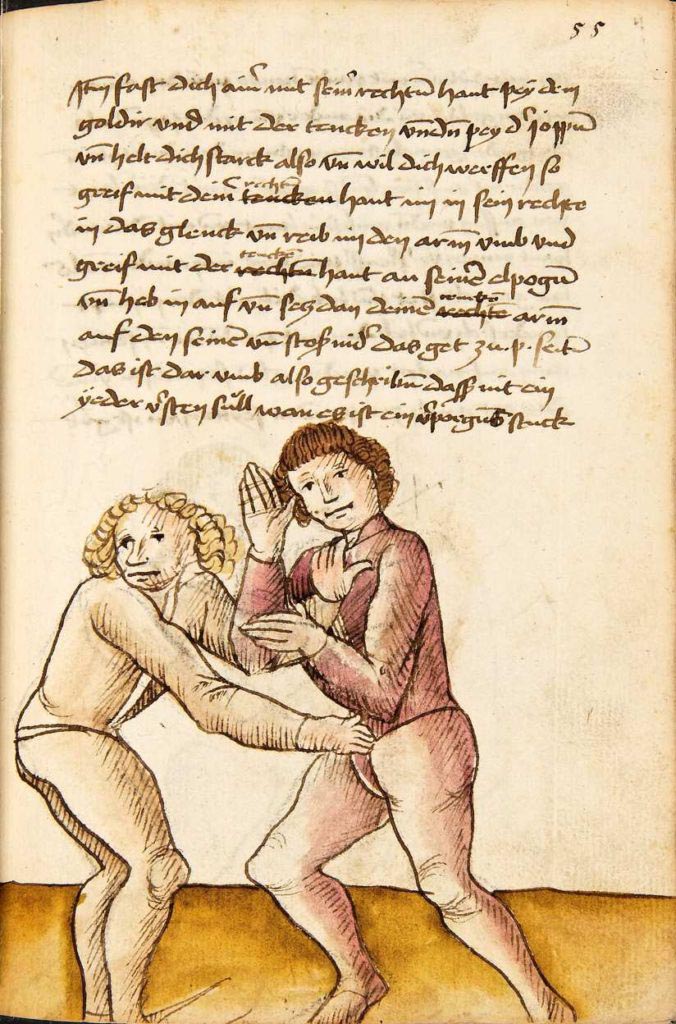 55
Itm̄ fast dich ain͛ mit sein͛ rechtn̄ hant pey dem
goldir vnd mit der tencken vnḏn pey d͛ joppn̄
vn̄ helt dich starck also vn̄ wil dich werffen so
greif mit dein͛ rechtn̄ tencken hant im in sein rechte
in das glenck vn̄ reib im den arm̄ vmb vnd
greif mit der tenckn̄ rechtn̄ hant an seinē elpogn̄
vn̄ heb in auf vn̄ secz dan deinen tenckn̄ rechte arm̄
auf den seinē vn̄ stoſ nid͛ das get zu .p. seitn̄
das ist dar vmb also geschribn̄ dasſ nit ein
yeder v͛sten sull wan es ist ein v͛porgns stuck